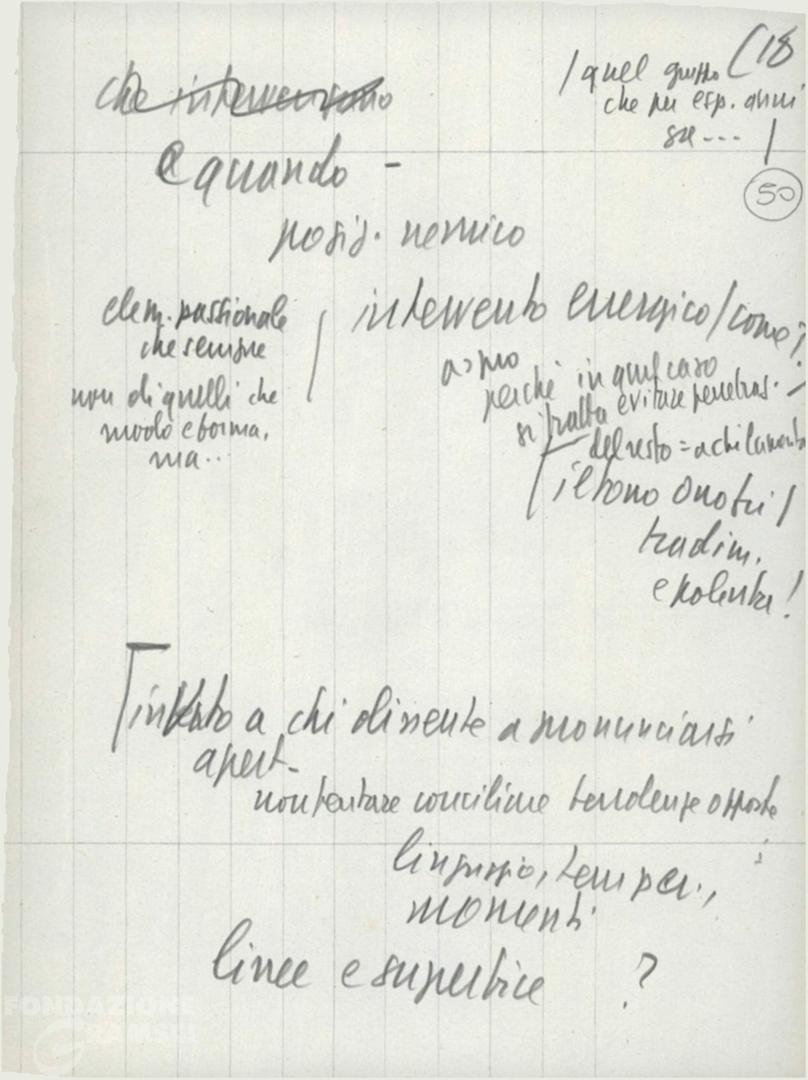 (18
/ quel gruppo
che per esp. anni
su... /
che intervengono
e quando -
50
posiz. nemico
elem. passionale
che sempre
non di quelli che
modo e forma,
ma..
/ intervento energico / come
aspro
perché in quel caso
si tratta evitare penetraz.
del resto =
il tono
tradim.
e polemica!
invito a chi dissente a pronunciarsi
apert-
non tentare conciliare tendenze opposte
linguaggio, temper.,
momenti
linee e superficie ?
FONDAZIONE
GRAMSCI